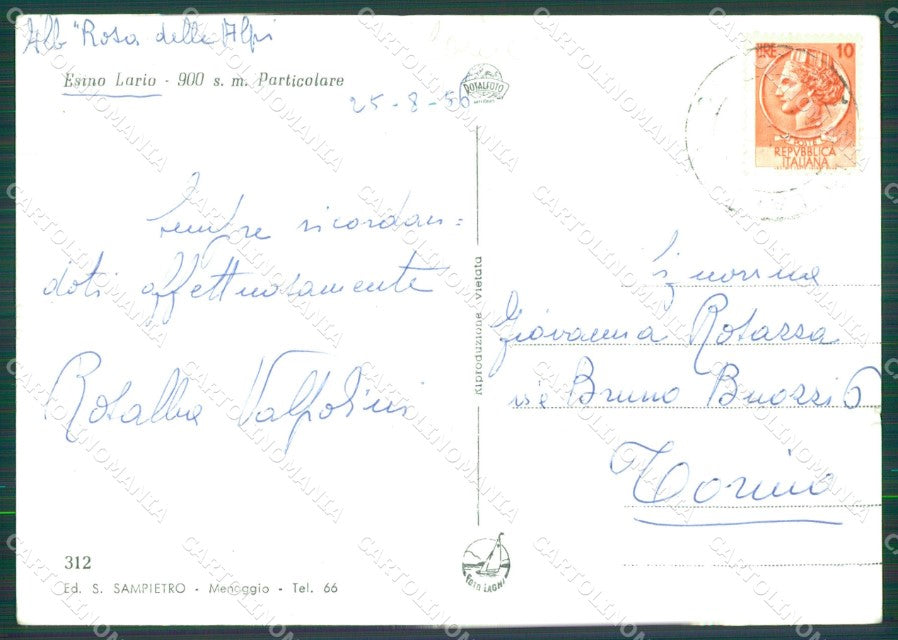 Alb "Rosa delle Alpi
Esino Lario - 900 s. m. Particolare
25-8-56
ROTALFOTO
LIRE 10
POSTE
REPVBBLICA
ITALIANA
Sempre ricordan=
doti affettuosamente
Rosalba Valpolini
Riproduzione vietata
Signorina
Giovanna Rosazza
via Bruno Buozzi 6
Torino
312
Ed. S. SAMPIETRO - Menaggio - Tel. 66
FOTO LAGHI
CARTOLINOMANIA